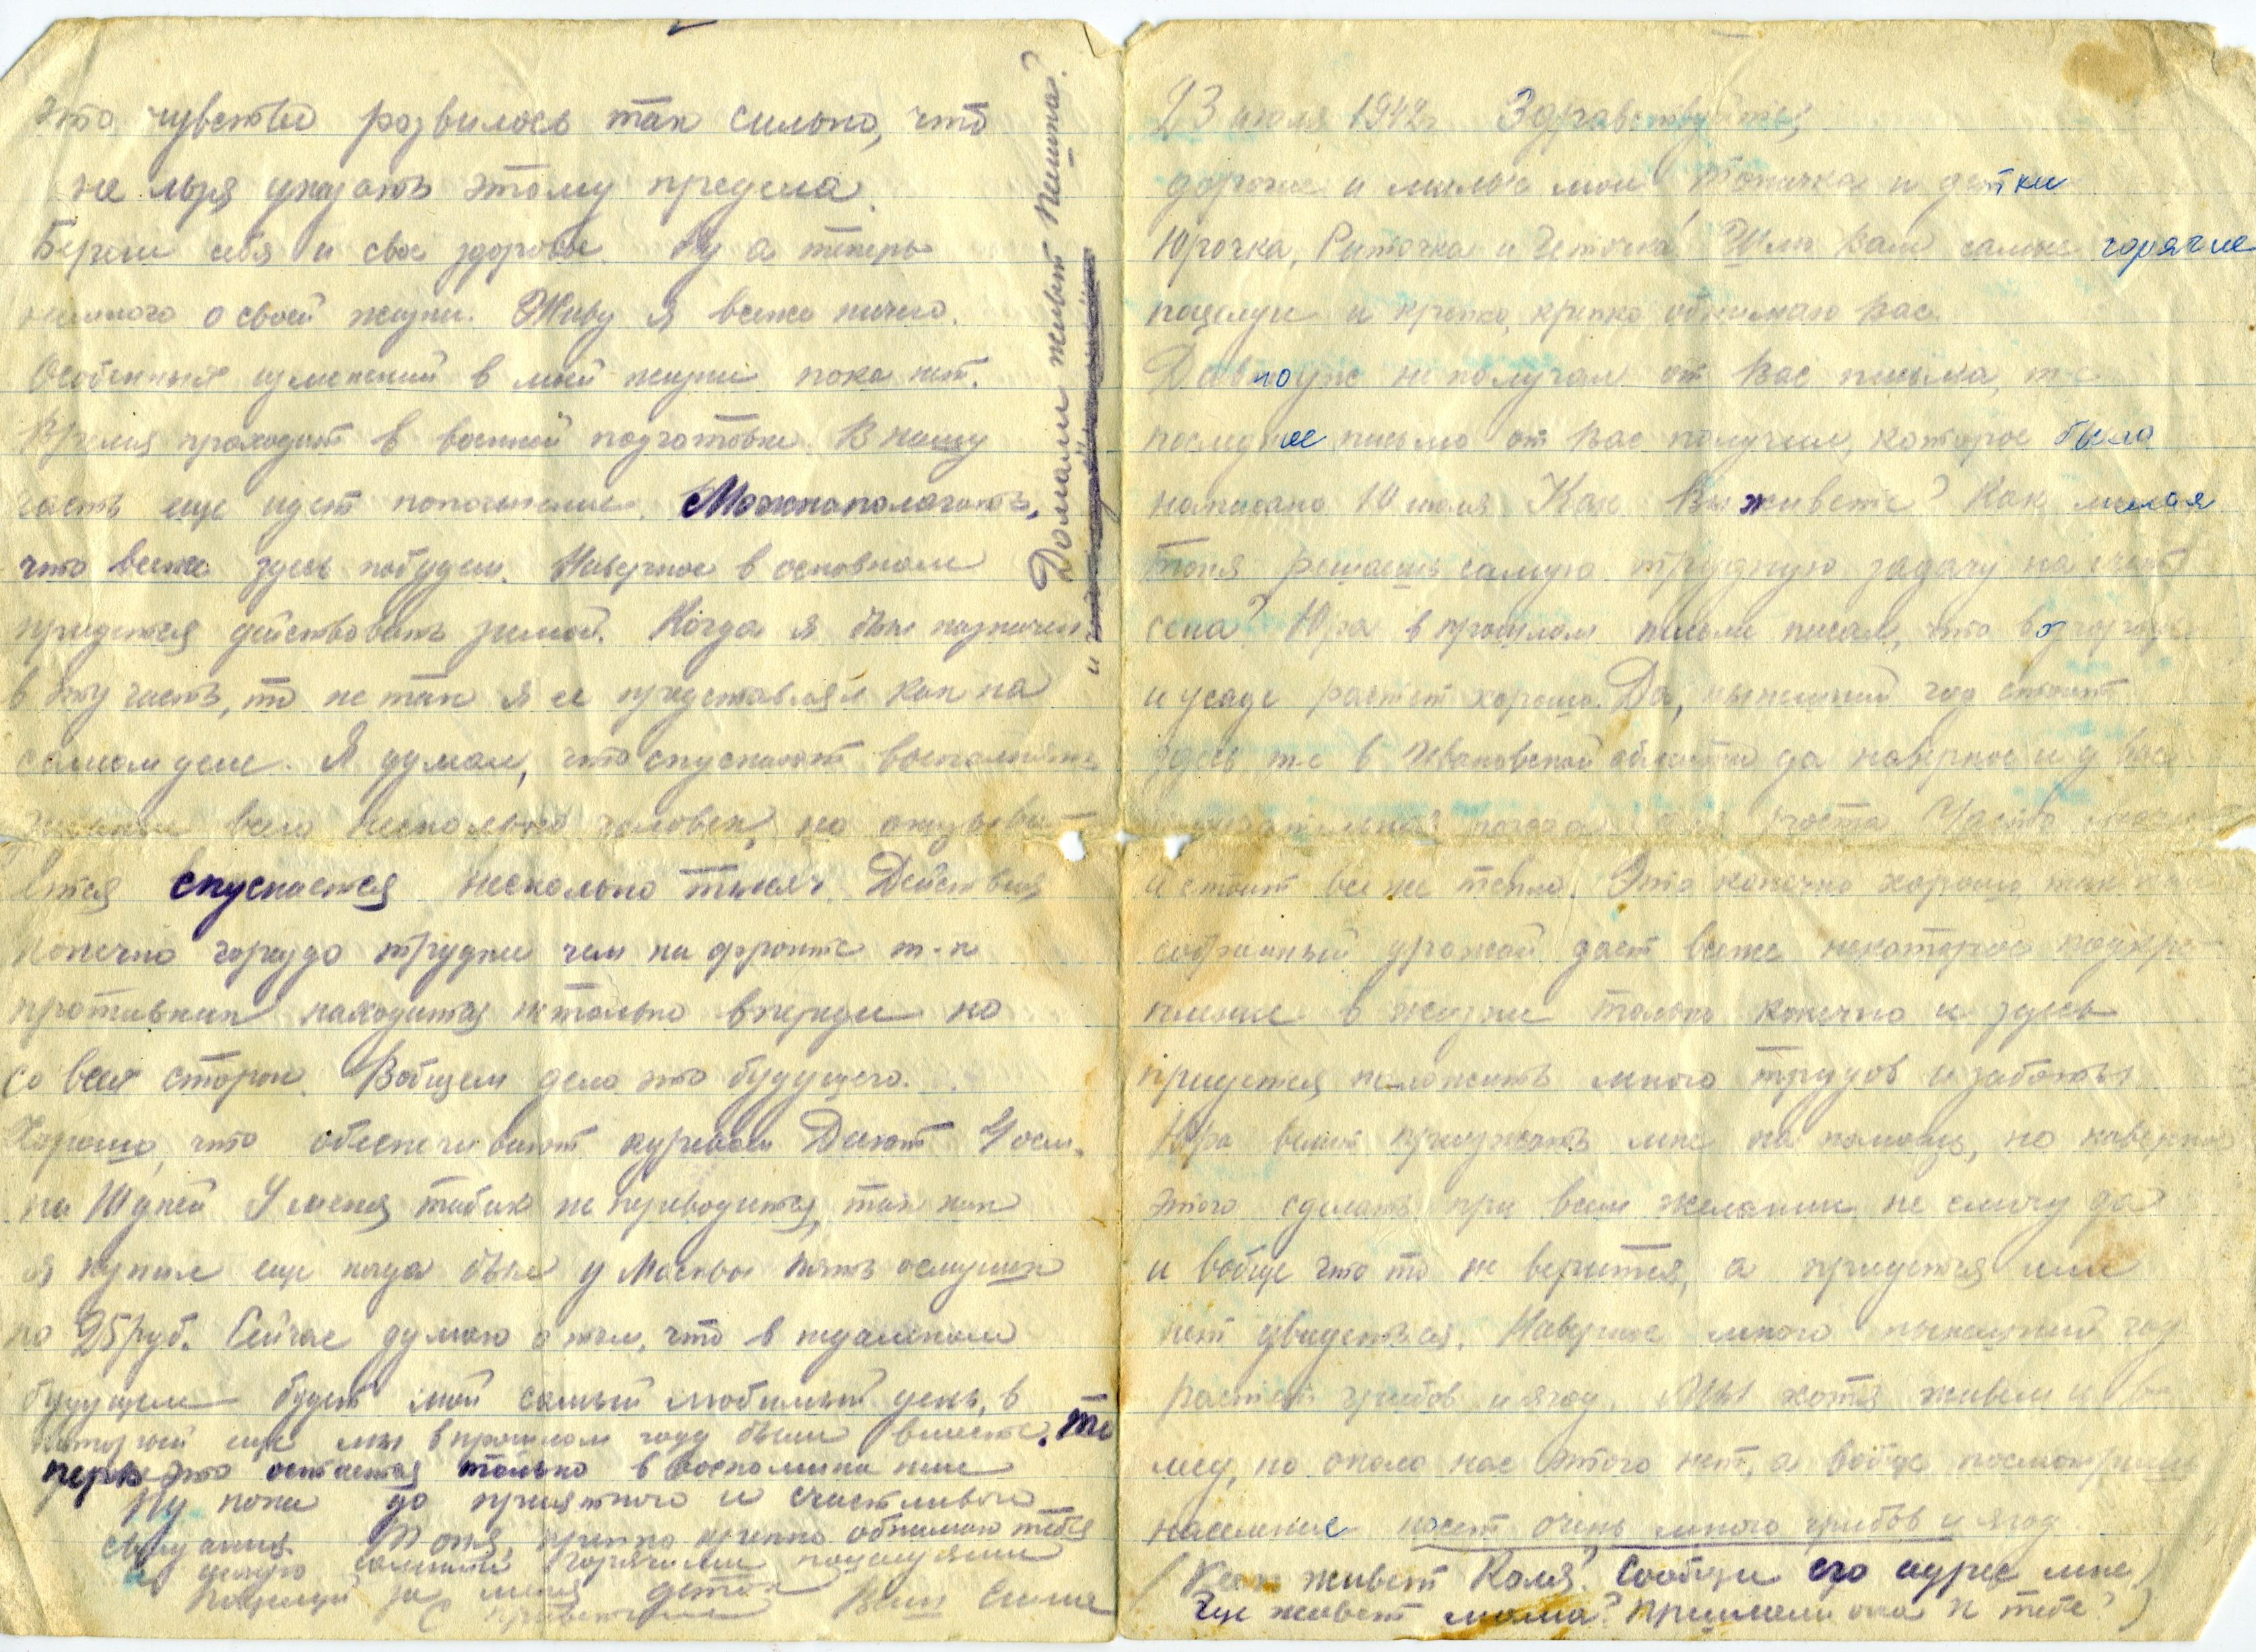 23 июля 1942 г Здравствуйте,
дорогие и милые мои Тонечка и детки
Юрочка, Риточка и Веточка! Шлю вам самые горячие
поцелуи и крепко, крепко обнимаю вас.
Давно уже не получал от вас письма, т-е
последнее письмо от вас получил, которое было
написано 10 июля. Как вы живете? Как милая
Тоня решаешь самую трудную задачу на счет
сена? Юра в прошлом письме писал, что в огороде
и усаде растет хорошо. Да, нынешний год стоит
здесь т-е в Ивановской области да наверное и у вас
погода для роста. Часто
и стоит все же тепло. Это конечно хорошо, так как
собранный урожай даст всеже некоторое подкре-
пление в жизни только конечно и здесь
придется положить много трудов и заботы
Юра велит приезжать мне на помощь, но наверное
этого сделать при всем желании не смогу да
и вобще что то не верится, а придется или
нет увидеться. Наверное много нынешний год
растет грибов и ягод. Мы хотя живем и в
лесу, но около нас этого нет, а вобще посмотришь
население носит очень много грибов и ягод.
(Как живет Коля? Сообщи его адрес мне)
Где живет мама? Пришлели она к тебе?)
это чувство развилось так сильно, что
не льзя указать этому предела.
Береги себя и свое здоровье. Ну а теперь
немного о своей жизни. Живу я всеже ничего.
Особенных изменений в моей жизни пока нет.
Время проходит в военной подготовке. В нашу
часть еще идет пополнение. Можно полагать,
что всеже здесь побудем. Наверное в основном
придется действовать зимой. Когда я был назначен
в эту часть, то не так я ее представлял как на
самом деле. Я думал, что спускают
всего несколько человек, но оказыва-
ется спускается несколько тысяч. Действия
конечно гораздо трудней чем на фронте т-к
противник находится не только впереди но
со всех сторон. Вобщем дело это будущего.
Хорошо, что обеспечивают куревом. Дают 4 осм.
на 10 дней. У меня табак не переводится, так как
я купил еще когда был у Москвы пять осмушек
по 25 руб. Сейчас думаю о том, что в недалеком
будущем будет мой самый любимый день, в
который еще мы в прошлом году были вместе. Те
перь это остается только в воспоминании
Ну пока до приятного и счастливого
свидания. Тоня, крепко крепко обнимаю тебя
и целую самыми горячими поцелуями
Поцелуй за меня деток
С приветом Ваш
Домами живет Пашина?
и